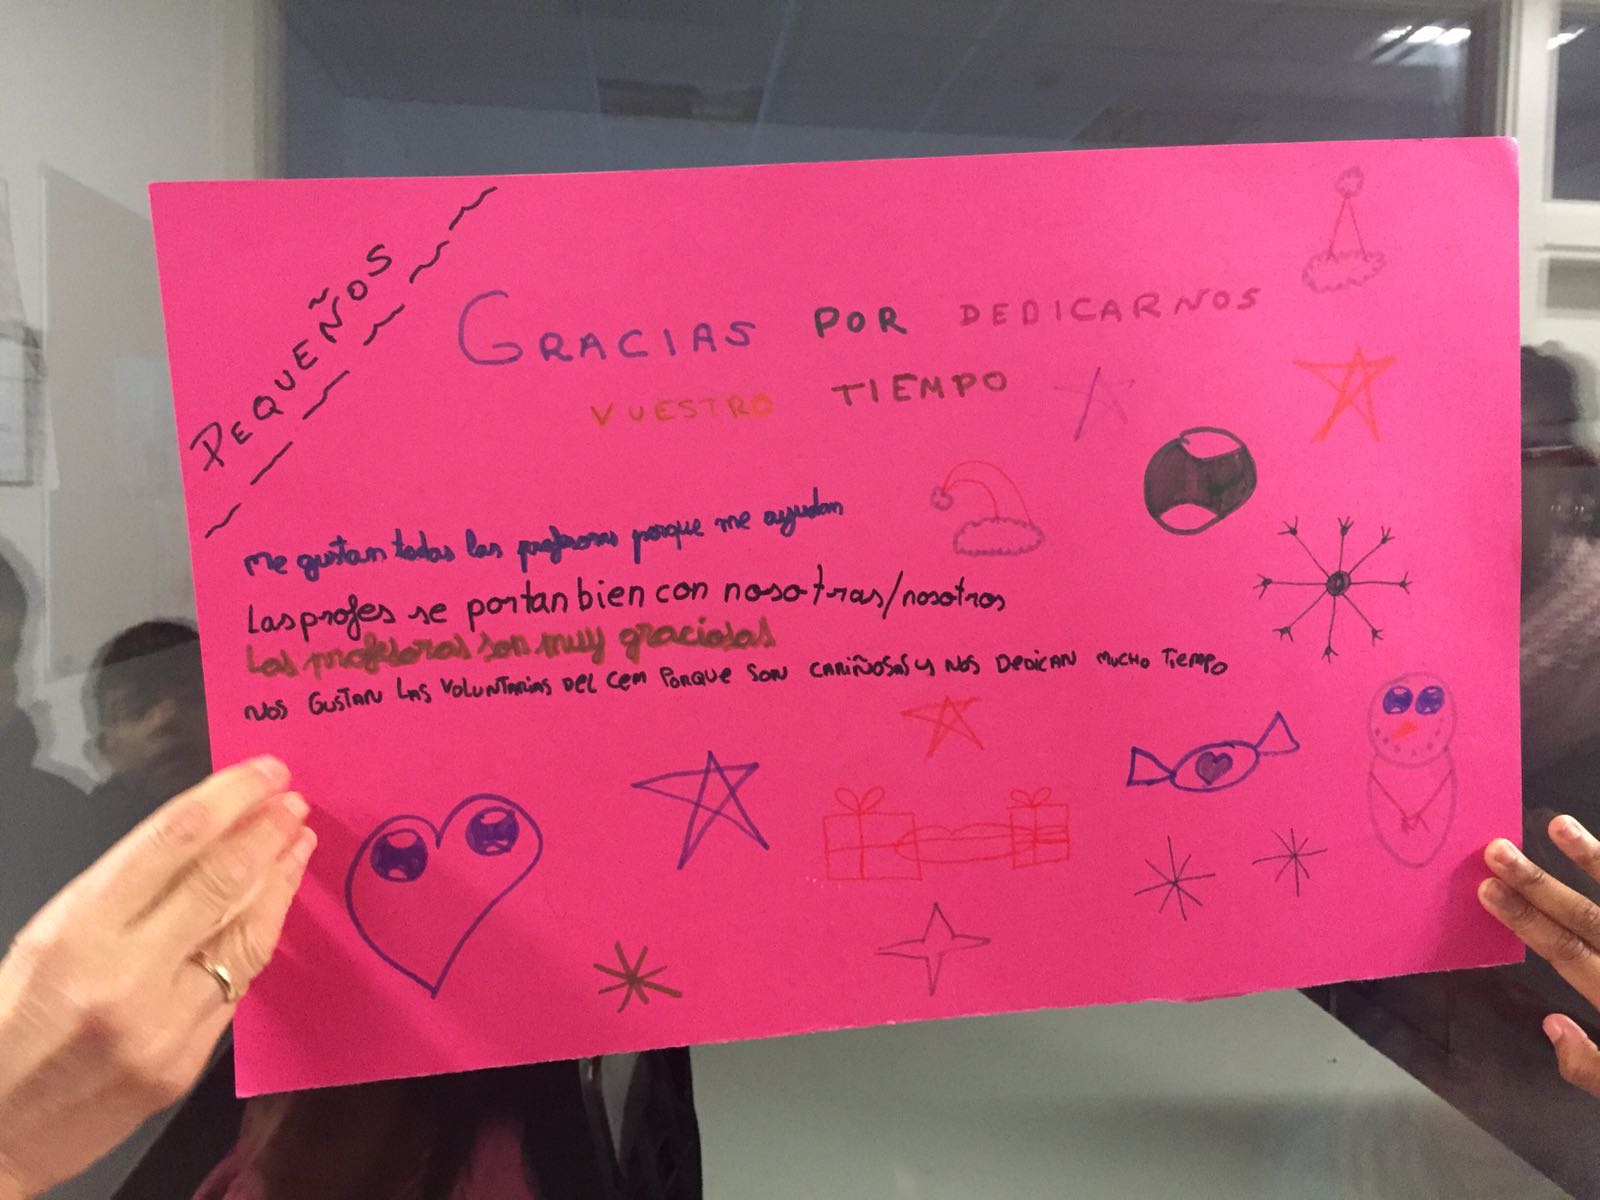 PEQUEÑOS
GRACIAS POR DEDICARNOS
VUESTRO TIEMPO
Me gustan todas las profesoras porque me ayudan
Las profes se portan bien con nosotras/nosotros
Las profesoras son muy graciosas
NOS GUSTAN LAS VOLUNTARIAS DEL CEM PORQUE SON CARIÑOSAS Y NOS DEDICAN MUCHO TIEMPO